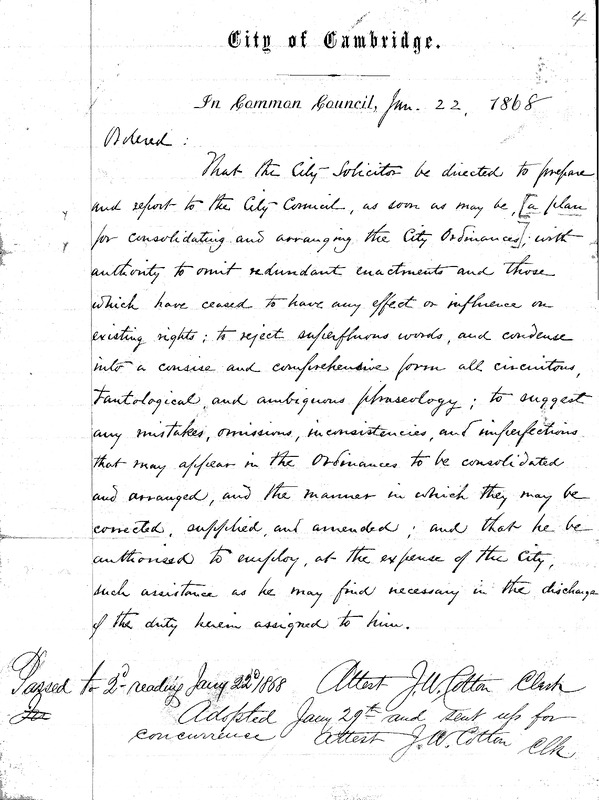 4
City of Cambridge.
In Common Council, Jan. 22, 1868
Ordered :
That the City Solicitor be directed to prepare
and report to the City Council, as soon as may be, [a plan
for consolidating and arranging the City Ordinances], with
authority to omit redundant enactments and those
which have ceased to have any effect or influence on
existing rights ; to reject superfluous words, and condense
into a consise and comprehensive form all circuitous,
tautological and ambiguous phraseology ; to suggest
any mistakes, omissions, inconsistencies, and imperfections
that may appear in the Ordinances to be consolidated
and arranged, and the manner in which they may be
corrected, supplied, and amended ; and that he be
authorised to employ, at the expense of the City,
such assistance as he may find necessary in the discharge
of the duty herein assigned to him.
Passed to 2d reading Jany 22d 1868 Attest J.W. Cotton Clerk
Adopted Jany 29th and sent up for
concurrence Attest J.W. Cotton Clk